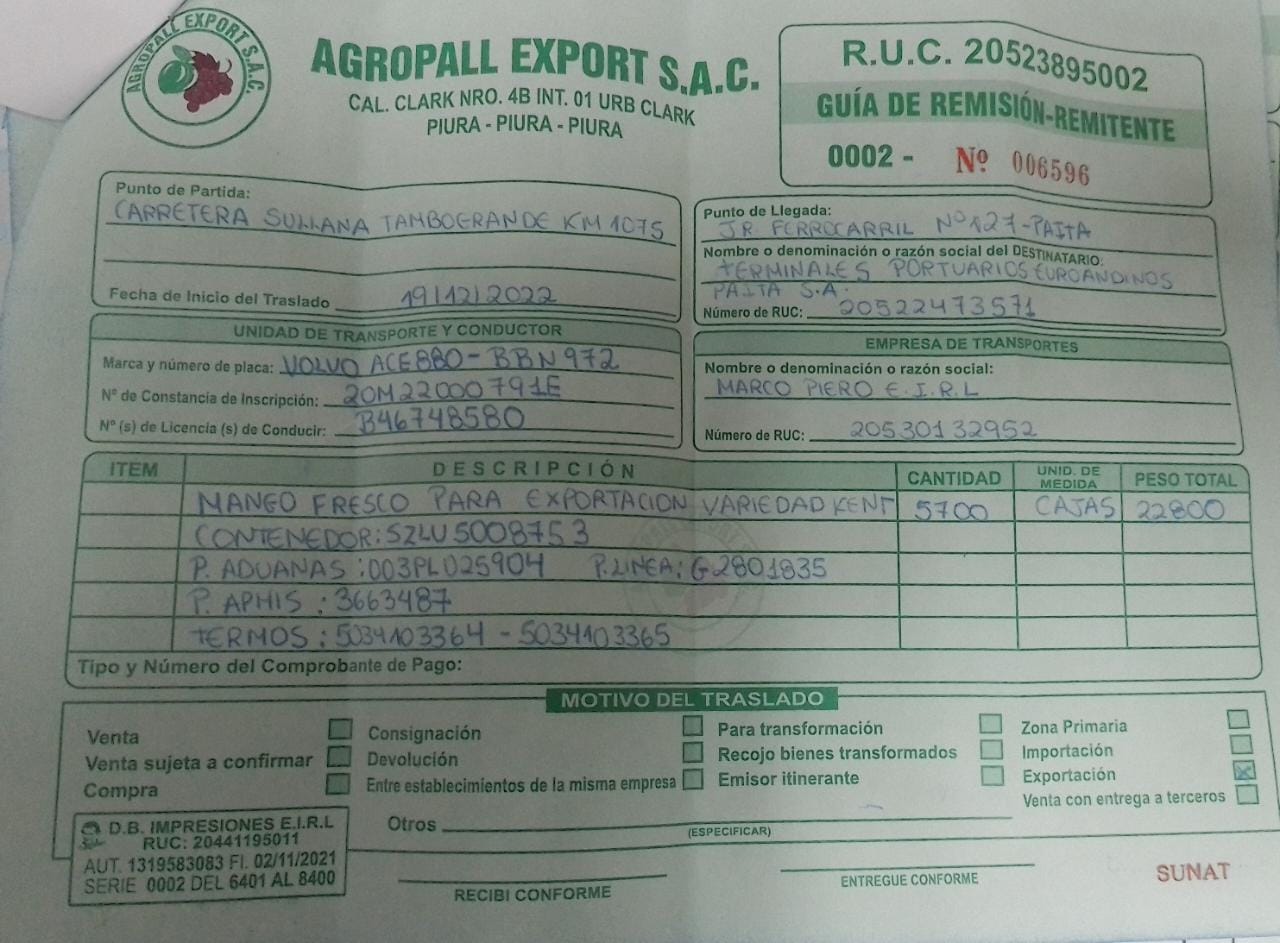 AGROPALL EXPORT S.A.C.
AGROPALL EXPORT S.A.C.
CAL. CLARK NRO. 4B INT. 01 URB CLARK
PIURA - PIURA - PIURA
R.U.C. 20523895002
GUÍA DE REMISIÓN-REMITENTE
0002 - Nº 006596
Punto de Partida:
CARRETERA SULLANA TAMBOGRANDE KM 1075
Fecha de Inicio del Traslado 19/12/2022
Punto de Llegada:
JR. FERROCARRIL Nº127-PAITA
Nombre o denominación o razón social del DESTINATARIO:
TERMINALES PORTUARIOS EUROANDINOS
PAITA S.A.
Número de RUC: 20522473571
UNIDAD DE TRANSPORTE Y CONDUCTOR
Marca y número de placa: VOLVO ACE880-BBN972
Nº de Constancia de Inscripción: 20M22000791E
Nº (s) de Licencia (s) de Conducir: B46748580
EMPRESA DE TRANSPORTES
Nombre o denominación o razón social:
MARCO PIERO E.I.R.L
Número de RUC: 20530132952
ITEM DESCRIPCIÓN CANTIDAD UNID. DE MEDIDA PESO TOTAL
MANGO FRESCO PARA EXPORTACION VARIEDAD KENT 5700 CAJAS 22800
CONTENEDOR: SZLU5008753
P. ADUANAS : 003PL025904 P.LINEA: G2801835
P. APHIS : 3663487
TERMOS : 5034103364 - 5034103365
Tipo y Número del Comprobante de Pago:
MOTIVO DEL TRASLADO
Venta
Venta sujeta a confirmar
Compra
Consignación
Devolución
Entre establecimientos de la misma empresa
Para transformación
Recojo bienes transformados
Emisor itinerante
Zona Primaria
Importación
Exportación X
Venta con entrega a terceros
Otros
(ESPECIFICAR)
D.B. IMPRESIONES E.I.R.L
RUC: 20441195011
AUT. 1319583083 FI. 02/11/2021
SERIE 0002 DEL 6401 AL 8400
RECIBI CONFORME
ENTREGUE CONFORME
SUNAT